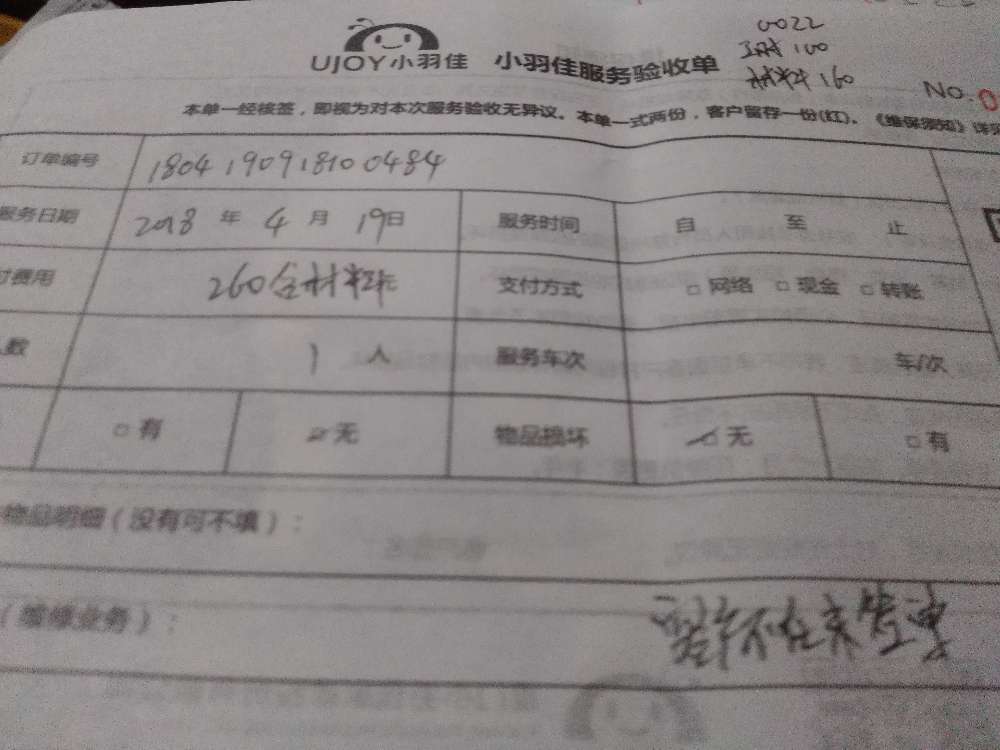 0022
工时100
材料160
UJOY小羽佳 小羽佳服务验收单
NO.0
本单一经核签，即视为对本次服务验收无异议。本单一式两份，客户留存一份(红)。《维保须知》详
订单编号 1804190918100484
服务日期 2018 年 4 月 19日 服务时间 自 至 止
付费用 260含材料 支付方式 □ 网络 □ 现金 □ 转账
人数 1 人 服务车次 车/次
□ 有 □ 无 物品损坏 □ 无 □ 有
物品明细（没有可不填）：
（维修业务）：
不在未签字